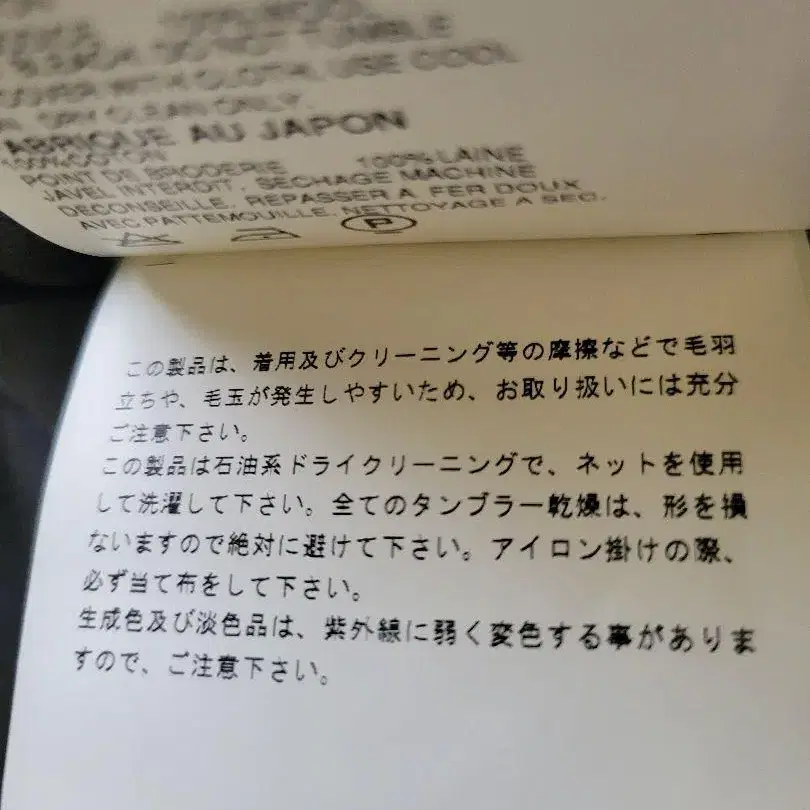 DO NOT TUMBLE
COVER WITH CLOTH, USE COOL
DRY CLEAN ONLY.
FABRIQUE AU JAPON
100% COTON
POINT DE BRODERIE 100% LAINE
JAVEL INTERDIT, SECHAGE MACHINE
DECONSEILLE, REPASSER A FER DOUX
AVEC PATTEMOUILLE, NETTOYAGE A SEC.
P
この製品は、着用及びクリーニング等の摩擦などで毛羽
立ちや、毛玉が発生しやすいため、お取り扱いには充分
ご注意下さい。
この製品は石油系ドライクリーニングで、ネットを使用
して洗濯して下さい。全てのタンブラー乾燥は、形を損
ないますので絶対に避けて下さい。アイロン掛けの際、
必ず当て布をして下さい。
生成色及び淡色品は、紫外線に弱く変色する事がありま
すので、ご注意下さい。